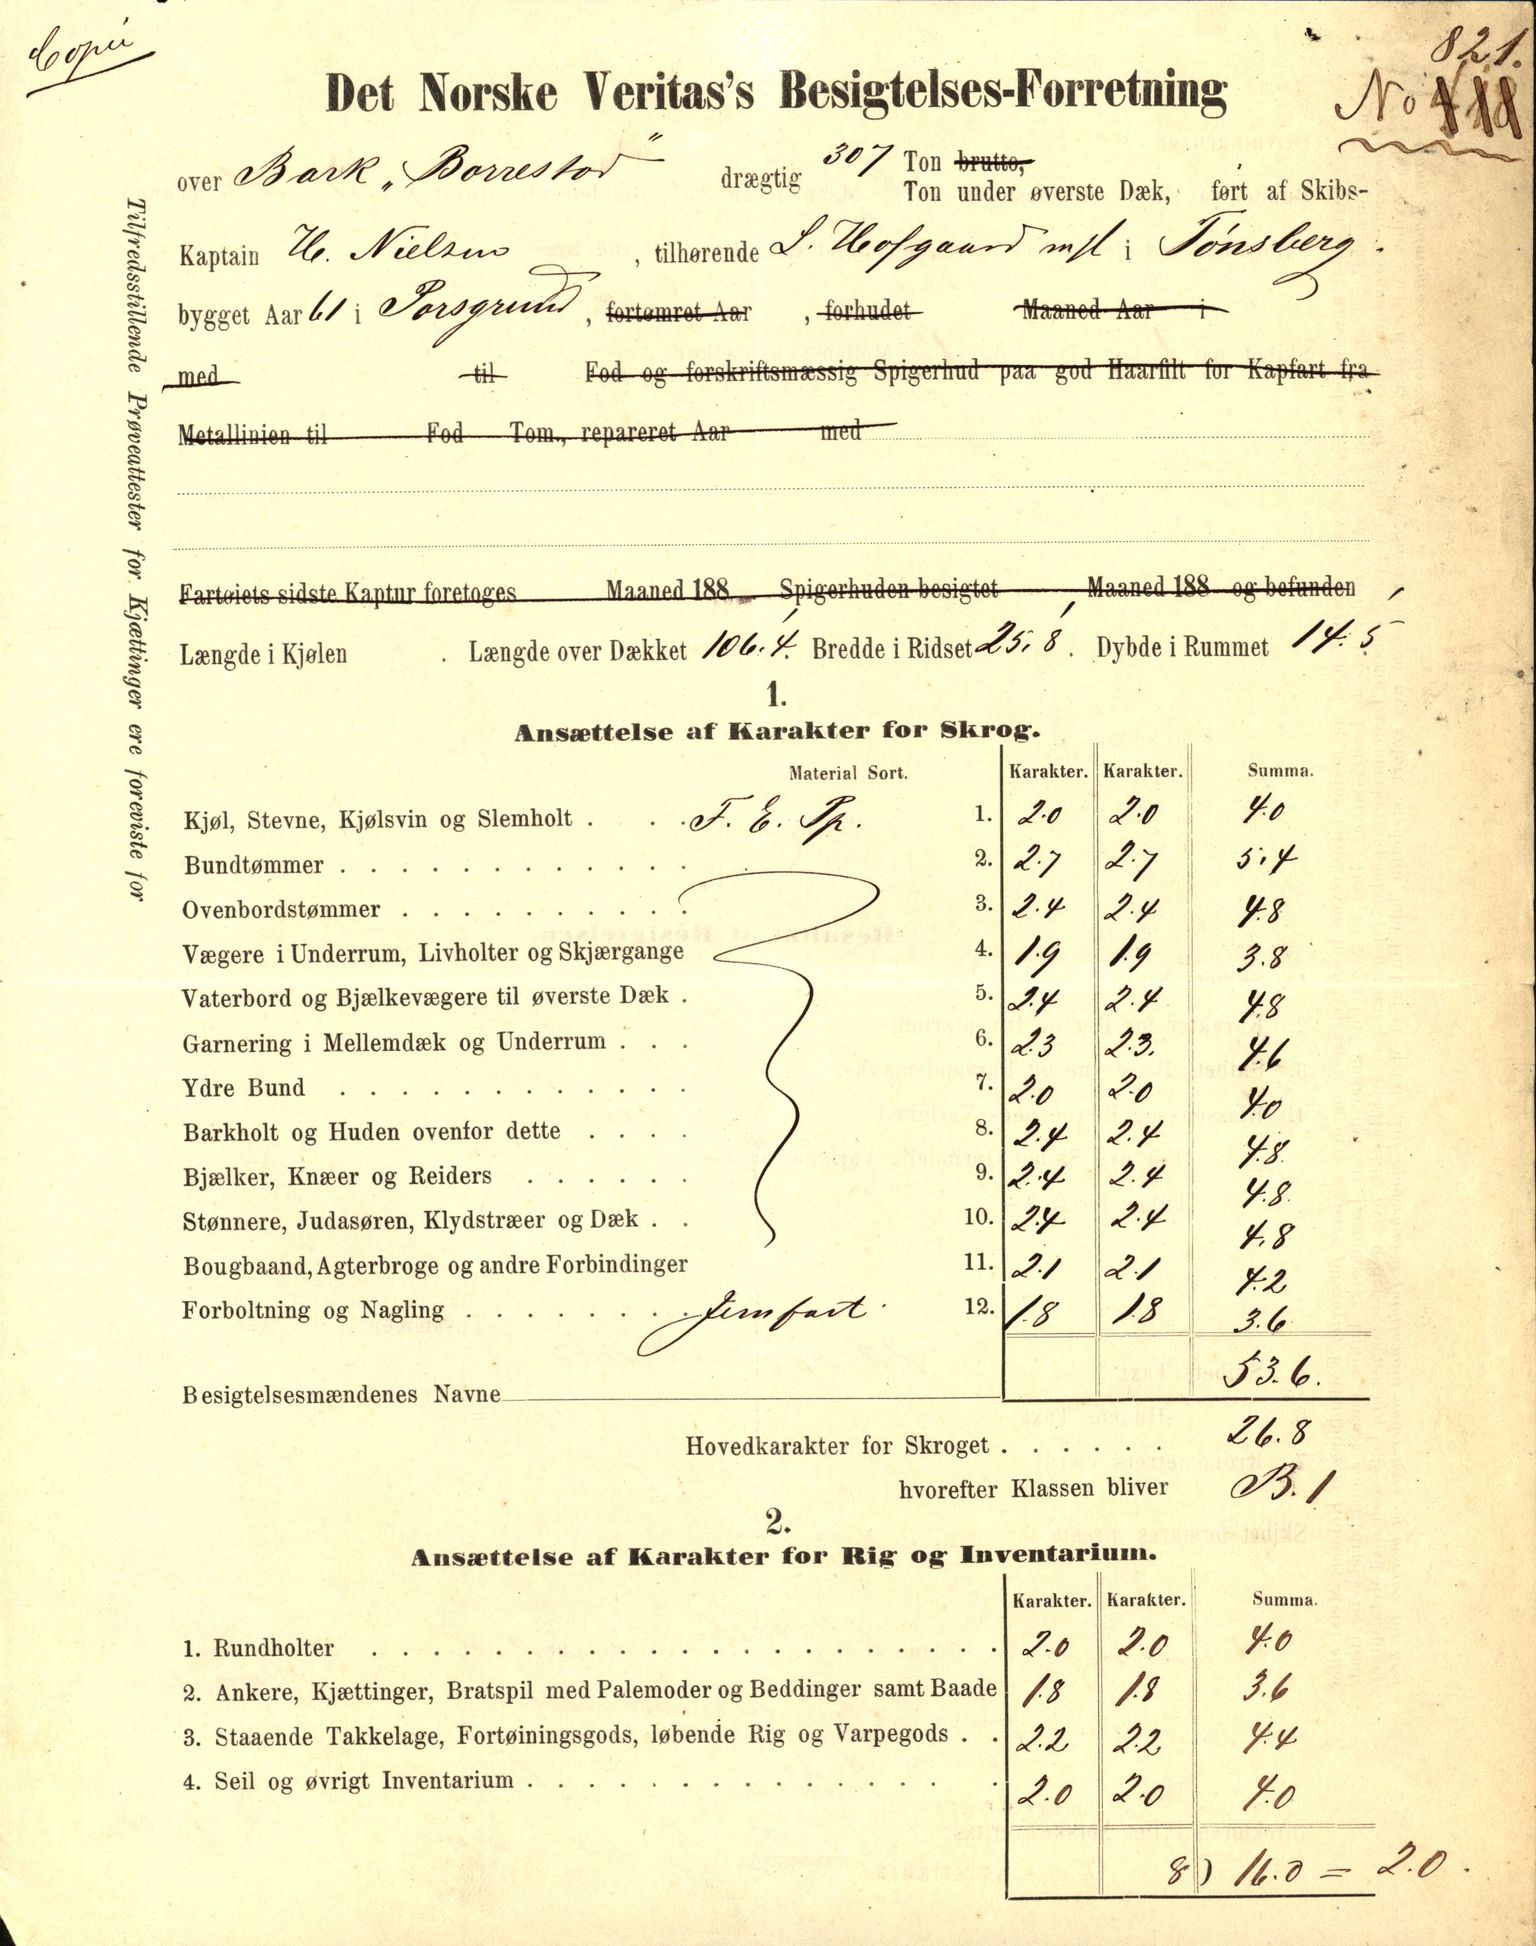 Copii
821.
Det Norske Veritas's Besigtelses-Forretning
No 118
over Bark „Borrestad" drægtig 307 Ton brutto,
Ton under øverste Dæk, ført af Skibs-
Kaptain H. Nielsen, tilhørende L. Hofgaard mfl i Tønsberg.
bygget Aar 61 i Porsgrund, fortømret Aar , forhudet Maaned Aar i
med til Fod og forskriftsmæssig Spigerhud paa god Haarfilt for Kapfart fra
Metallinien til Fod Tom., repareret Aar med
Fartøiets sidste Kaptur foretoges Maaned 188 Spigerhuden besigtet Maaned 188 og befunden
Længde i Kjølen . Længde over Dækket 106.'4. Bredde i Ridset 25.'8. Dybde i Rummet 14.'5
Tilfredsstillende Prøveattester for Kjættinger ere foreviste for
1.
Ansættelse af Karakter for Skrog.
Material Sort. Karakter. Karakter. Summa.
Kjøl, Stevne, Kjølsvin og Slemholt . . . F. E. Pp. 1. 2.0 2.0 4.0
Bundtømmer . . . . . . . . . . . . 2. 2.7 2.7 5.4
Ovenbordstømmer . . . . . . . . . . 3. 2.4 2.4 4.8
Vægere i Underrum, Livholter og Skjærgange 4. 1.9 1.9 3.8
Vaterbord og Bjælkevægere til øverste Dæk . 5. 2.4 2.4 4.8
Garnering i Mellemdæk og Underrum . . . 6. 2.3 2.3. 4.6
Ydre Bund . . . . . . . . . . . . 7. 2.0 2.0 4.0
Barkholt og Huden ovenfor dette . . . . 8. 2.4 2.4 4.8.
Bjælker, Knæer og Reiders . . . . . . 9. 2.4 2.4 4.8.
Stønnere, Judasøren, Klydstræer og Dæk . . 10. 2.4 2.4 4.8
Bougbaand, Agterbroge og andre Forbindinger 11. 2.1 2.1 4.2
Forboltning og Nagling . . . . . . . Jernfast 12. 1.8 1.8 3.6
53.6.
Besigtelsesmændenes Navne
Hovedkarakter for Skroget . . . . . . 26.8
hvorefter Klassen bliver B.1
2.
Ansættelse af Karakter for Rig og Inventarium.
Karakter. Karakter. Summa.
1. Rundholter . . . . . . . . . . . . . . . . . . . . 2.0 2.0 4.0
2. Ankere, Kjættinger, Bratspil med Palemoder og Beddinger samt Baade 1.8 1.8 3.6
3. Staaende Takkelage, Fortøiningsgods, løbende Rig og Varpegods . . 2.2 2.2 4.4
4. Seil og øvrigt Inventarium . . . . . . . . . . . . . . . 2.0 2.0 4.0
8) 16.0 = 2.0.